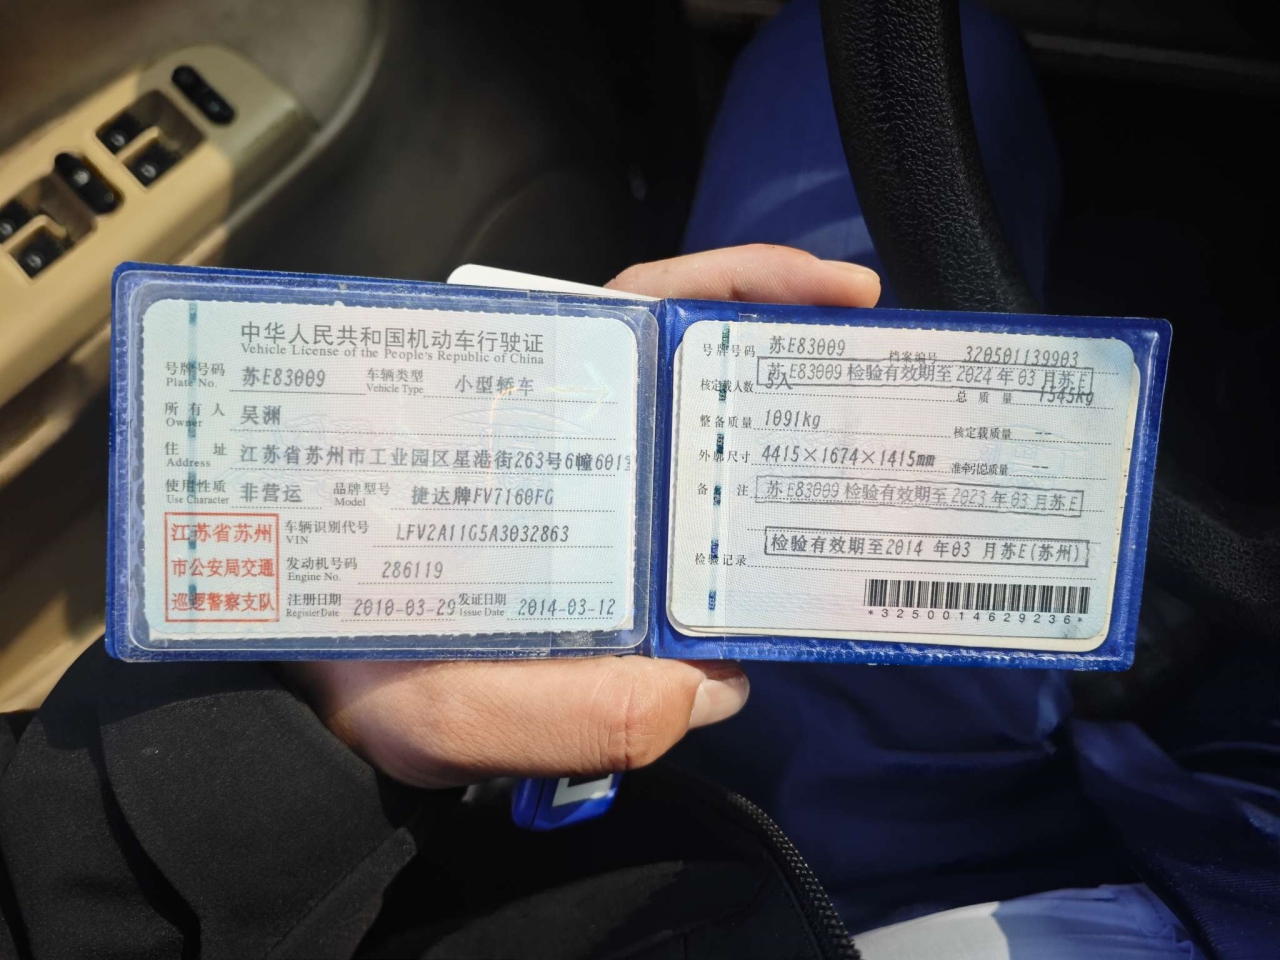 中华人民共和国机动车行驶证
Vehicle License of the People's Republic of China
号牌号码 苏E83009 车辆类型 小型轿车
Plate No. Vehicle Type
所有人 吴洲
Owner
住址 江苏省苏州市工业园区星港街263号6幢601室
Address
使用性质 非营运 品牌型号 捷达牌FV7160FG
Use Character Model
江苏省苏州
市公安局交通
巡逻警察支队
车辆识别代号 LFV2A11G5A3032863
VIN
发动机号码 286119
Engine No.
注册日期 2010-03-29 发证日期 2014-03-12
Register Date Issue Date
号牌号码 苏E83009 档案编号 320501139903
苏E83009 检验有效期至2024年03月苏E
核定载人数 5人 总质量 1545kg
整备质量 1091kg 核定载质量 --
外廓尺寸 4415×1674×1415mm 准牵引总质量 --
备注 苏E83009 检验有效期至2023年03月苏E
检验有效期至2014年03月苏E(苏州)
检验记录
*3250014629236*